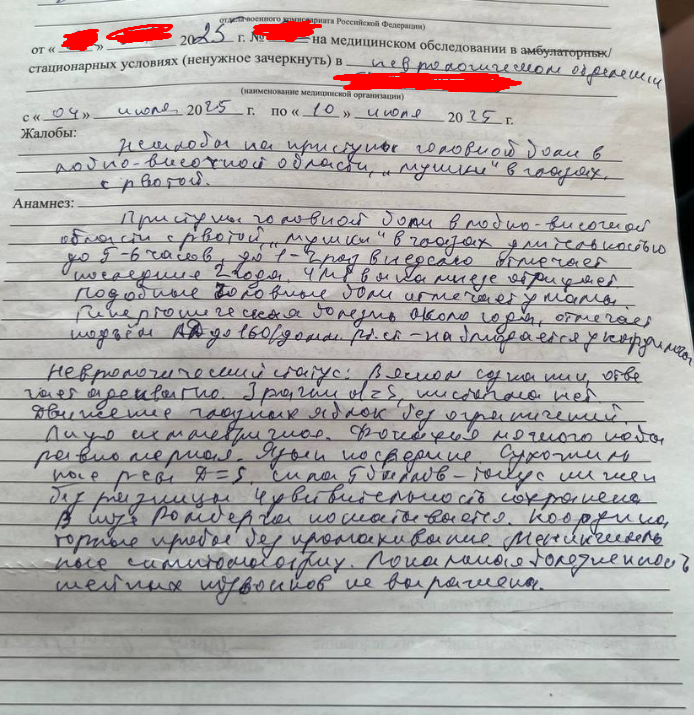 отдела военного комиссариата Российской Федерации)
от « » 2025 г. № на медицинском обследовании в амбулаторных/
стационарных условиях (ненужное зачеркнуть) в неврологическом отделении
(наименование медицинской организации)
с « 04 » июля 2025 г. по « 10 » июля 2025 г.
Жалобы:
на приступы головной боли в
лобно-височной области, „мушки" в глазах,
с рвотой.
Анамнез:
Приступы головной боли в лобно-височной
области с рвотой, „мушки" в глазах длительностью
до 5-6 часов, до 1-2 раз в неделю отмечает
последние 2 года. ЧМТ в анамнезе отрицает.
Подобные головные боли отмечает у мамы.
Гипертоническая болезнь около года, отмечает
подъём АД до 160/ рт.ст - наблюдается у кардиолога
Неврологический статус: В ясном сознании, отве
чает адекватно. Зрачки d=s, нистагма нет
Движение глазных яблок без ограничений.
Лицо симметричное. Фонация мягкого неба
равномерная. Язык по средине. Сухожиль
ные рефл D=S, сила 5 баллов - тонус мышц
без разницы Чувствительность сохранена
В позе Ромберга пошатывается. Координа
торные пробы без промахивание. Менингиаль
ные симптомы отриц. Локальная болезненность
шейных позвонков не выражена.